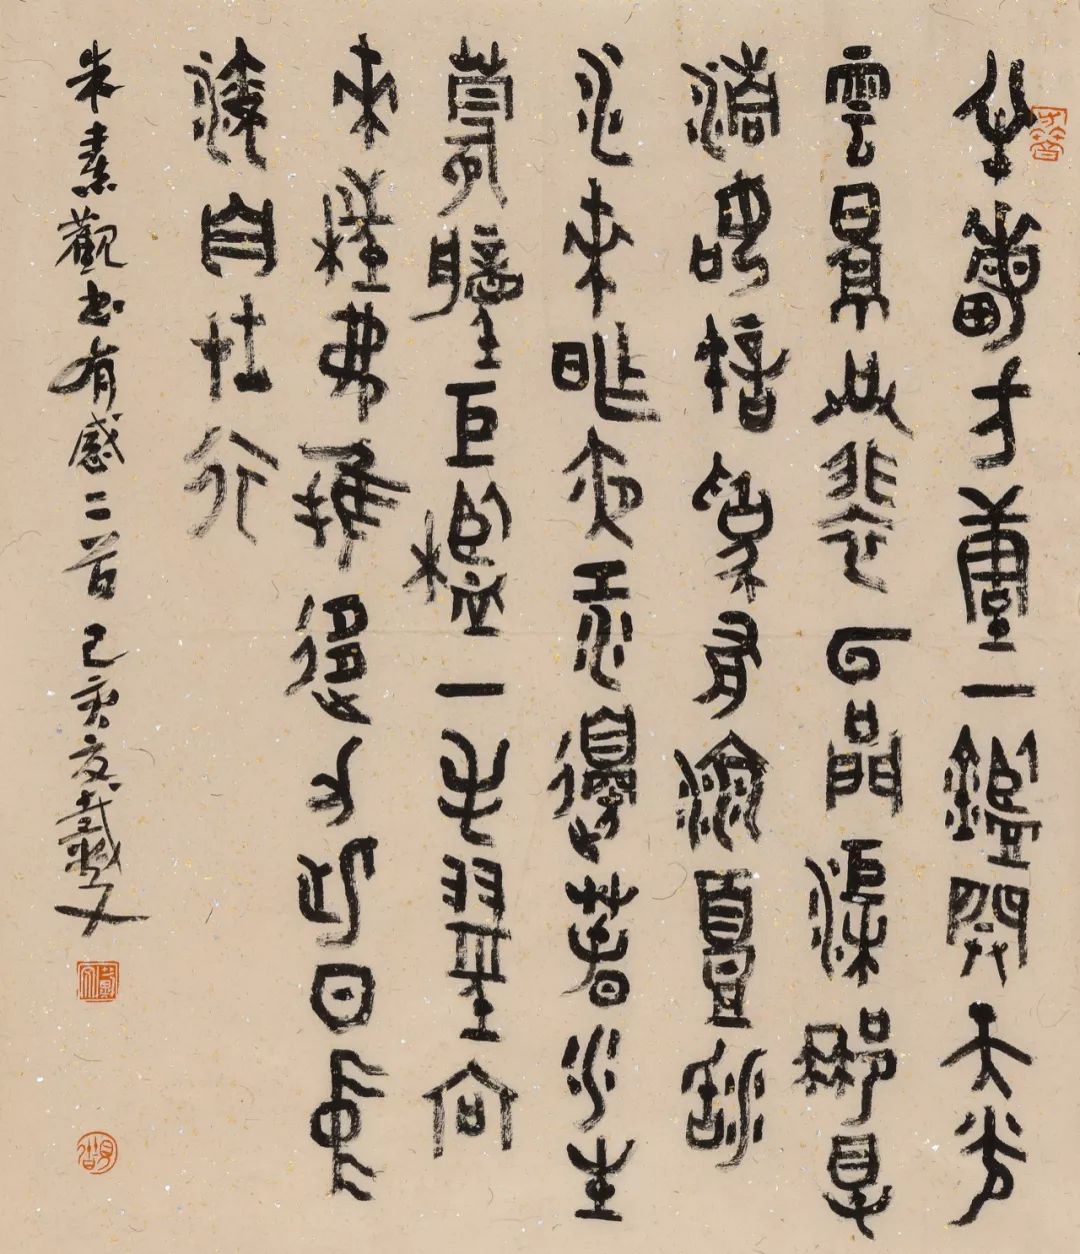 半畝方塘一鑑開天光
雲景共裴回問渠那得
清如許為有源頭活
水來昨夜江邊春水生
蒙衝巨艦一毛輕向
來枉費推移力此日中
流自在行
朱熹觀書有感二首 己亥夏戴文